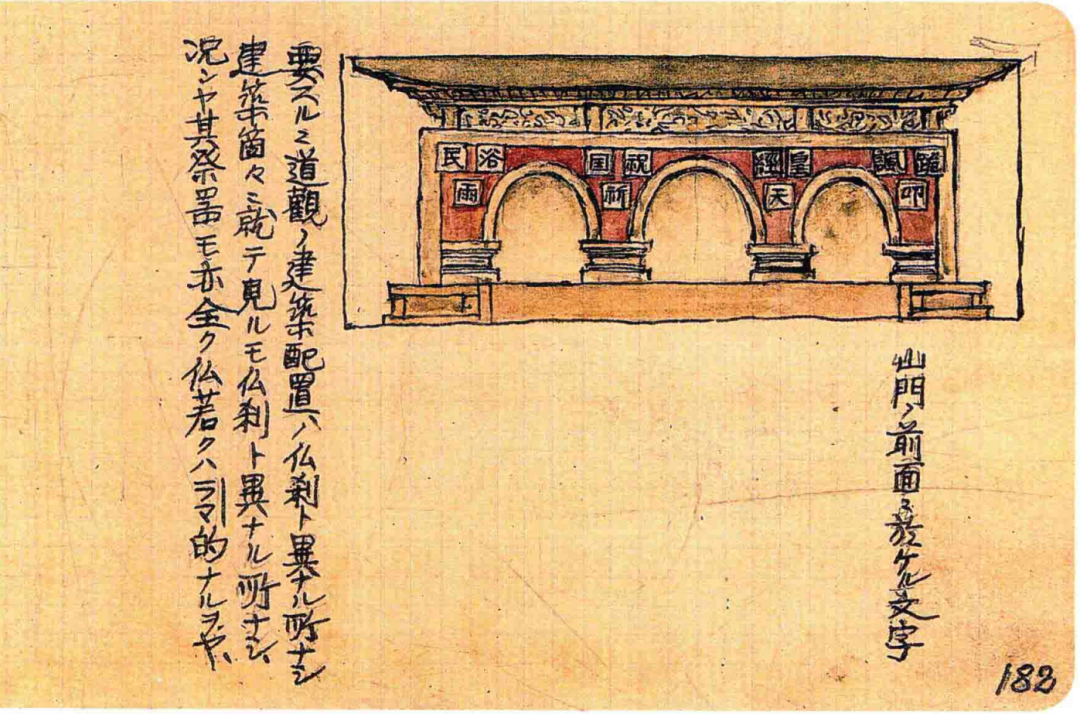 諷皇經祝国浴民
叩天祈雨
山門ノ前面ニ於ケル文字
要スルニ道觀ノ建築配置ハ仏刹ト異ナル所ナシ
建築箇々ニ就テ見ルモ仏刹ト異ナル所ナシ、
況ンヤ其祭器モ亦全ク仏若クハラマ的ナルヲヤ、
182